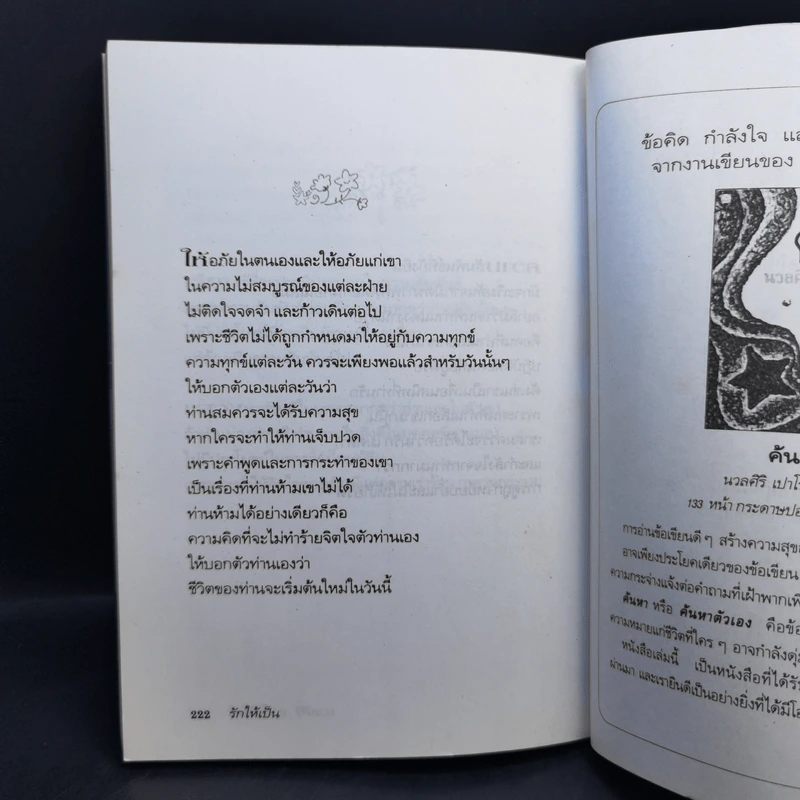 ให้อภัยในตนเองและให้อภัยแก่เขา
ในความไม่สมบูรณ์ของแต่ละฝ่าย
ไม่ติดใจจดจำ และก้าวเดินต่อไป
เพราะชีวิตไม่ได้ถูกกำหนดมาให้อยู่กับความทุกข์
ความทุกข์แต่ละวัน ควรจะเพียงพอแล้วสำหรับวันนั้นๆ
ให้บอกตัวเองแต่ละวันว่า
ท่านสมควรจะได้รับความสุข
หากใครจะทำให้ท่านเจ็บปวด
เพราะคำพูดและการกระทำของเขา
เป็นเรื่องที่ท่านห้ามเขาไม่ได้
ท่านห้ามได้อย่างเดียวก็คือ
ความคิดที่จะไม่ทำร้ายจิตใจตัวท่านเอง
ให้บอกตัวท่านเองว่า
ชีวิตของท่านจะเริ่มต้นใหม่ในวันนี้
222 รักให้เป็น
ข้อคิด กำลังใจ
จากงานเขียนของ
ค้น
นวลศิริ เปาโ
133 หน้า กระดาษปอ
การอ่านข้อเขียนดีๆ สร้างความสุข
อาจเพียงประโยคเดียวของข้อเขียน
ความกระจ่างแจ้งต่อคำถามที่เฝ้าพากเพี
ค้นหา หรือ ค้นหาตัวเอง คือข้อ
ความหมายแก่ชีวิตที่ใครๆ อาจกำลังดุ่ม
หนังสือเล่มนี้ เป็นหนังสือที่ได้รั
ผ่านมา และเรายินดีเป็นอย่างยิ่งที่ได้มีโ